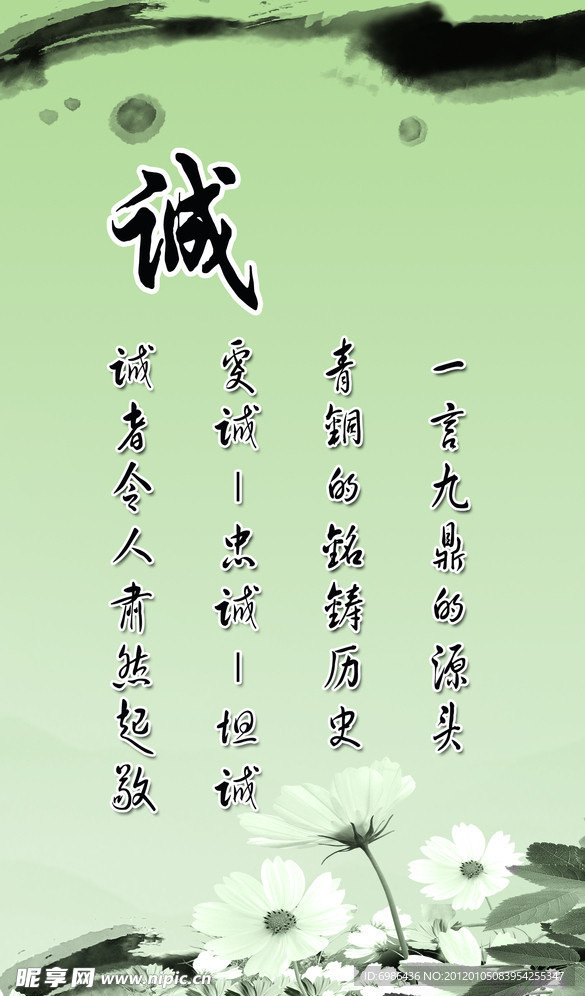 诚
一言九鼎的源头
青銅的銘鋳历史
雯诚－忠诚－坦诚
诚者令人肃然起敬
昵享网 www.nipic.cn
ID:6986436 NO:20120105083954255347